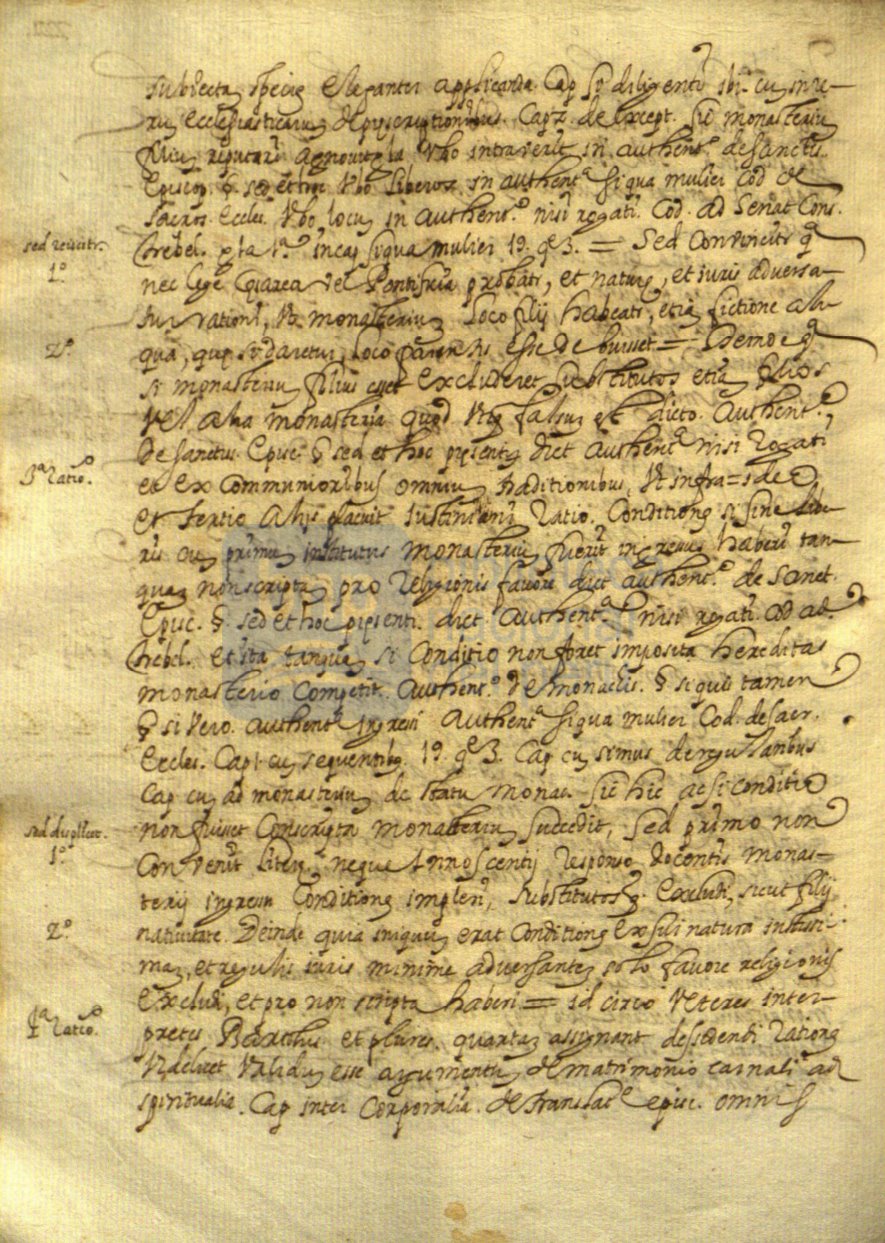 subiecta specie eleganter applicanda Cap si diligenti ibi cu in re-
ru Ecclesiasticaru de prescriptionibus. Cap 2. de except. sic monasteriu
filiu reputari agnovit gla Vbo intraverit in authent. de sanctis.
Episcop. § sed et hoc Vbo liberos in authent. si qua mulier Cod de
sacros. Eccles. Vbo locu in Authent.º nisi rogati. Cod. ad Senat Cons.
sed reiicitr. Trebel. gla 1.ª in cap si qua mulier 19. q 3. = Sed Convincitr q
1º. nec lege Caesarea vel Pontificia probatr, et natura, et iuris adversa-
tur rationi, Vt monasteriu loco filij habeatr, etia fictione ali-
2º. qua, que si daretur, loco parentis esse debuisset = Idemq q
si monasteriu filius esset excluderet substitutos etia filios
Vel alia monasteria quod Vtq falsu est dicto. Authent.
de sanctis. Episc. § sed et hoc presenti dict Authent. nisi rogati
3ª ratio. et ex Communioribus omniu traditionibus, Vt infra = ideo
et tertio alijs placuit Iustiniani ratio. Conditione si sine libe-
ris cu primu institutus monasteriu fuerit ingressus haberi tan-
qua non scripta pro religionis favore dict authent.º de sanct.
Episc. § sed et hoc presenti. dict Authent.ª nisi rogati Cod ad
Trebel. et ita tanqua si Conditio non foret imposita hereditas
monasterio Competit. Authent.º de monachis. § si quis tamen
§ si Vero. authent. ingressi Authent. si qua mulier Cod. de sacr.
Eccles. Cap 1. cu sequentibus 19. q 3. Cap cu simus de regularibus
Cap cu ad monasteriu de statu monac. sic hic ac si conditio
sed displicet. non fuisset Conscripta monasteriu succedit, sed primo non
1º. Convenit litere neque Innoscentij responso docentis monas-
terij ingressu Conditione impleri, substitutosq. excludi, sicut filij
2º. nativitate. Deinde quia iniquu erat Conditione ex sui natura iustissi-
ma, et regulis iuris minime adversante solo favore religionis
excludi, et pro non scripta haberi = id circo Veteres inter-
4ª ratio. pretes Bartolus et plures. quarta assignant dessidendi ratione
Videlicet Validu esse argumentu de matrimonio carnali ad
spiritualia. Cap inter Corporalia. de translac.e episc. omnis